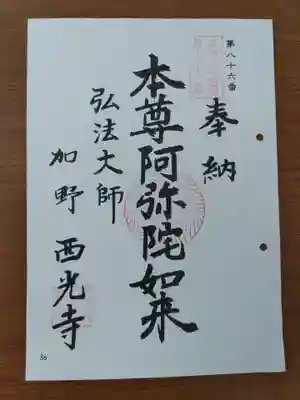 第八十六番
奉納
本尊阿弥陀如来
弘法大師
加野 西光寺
86